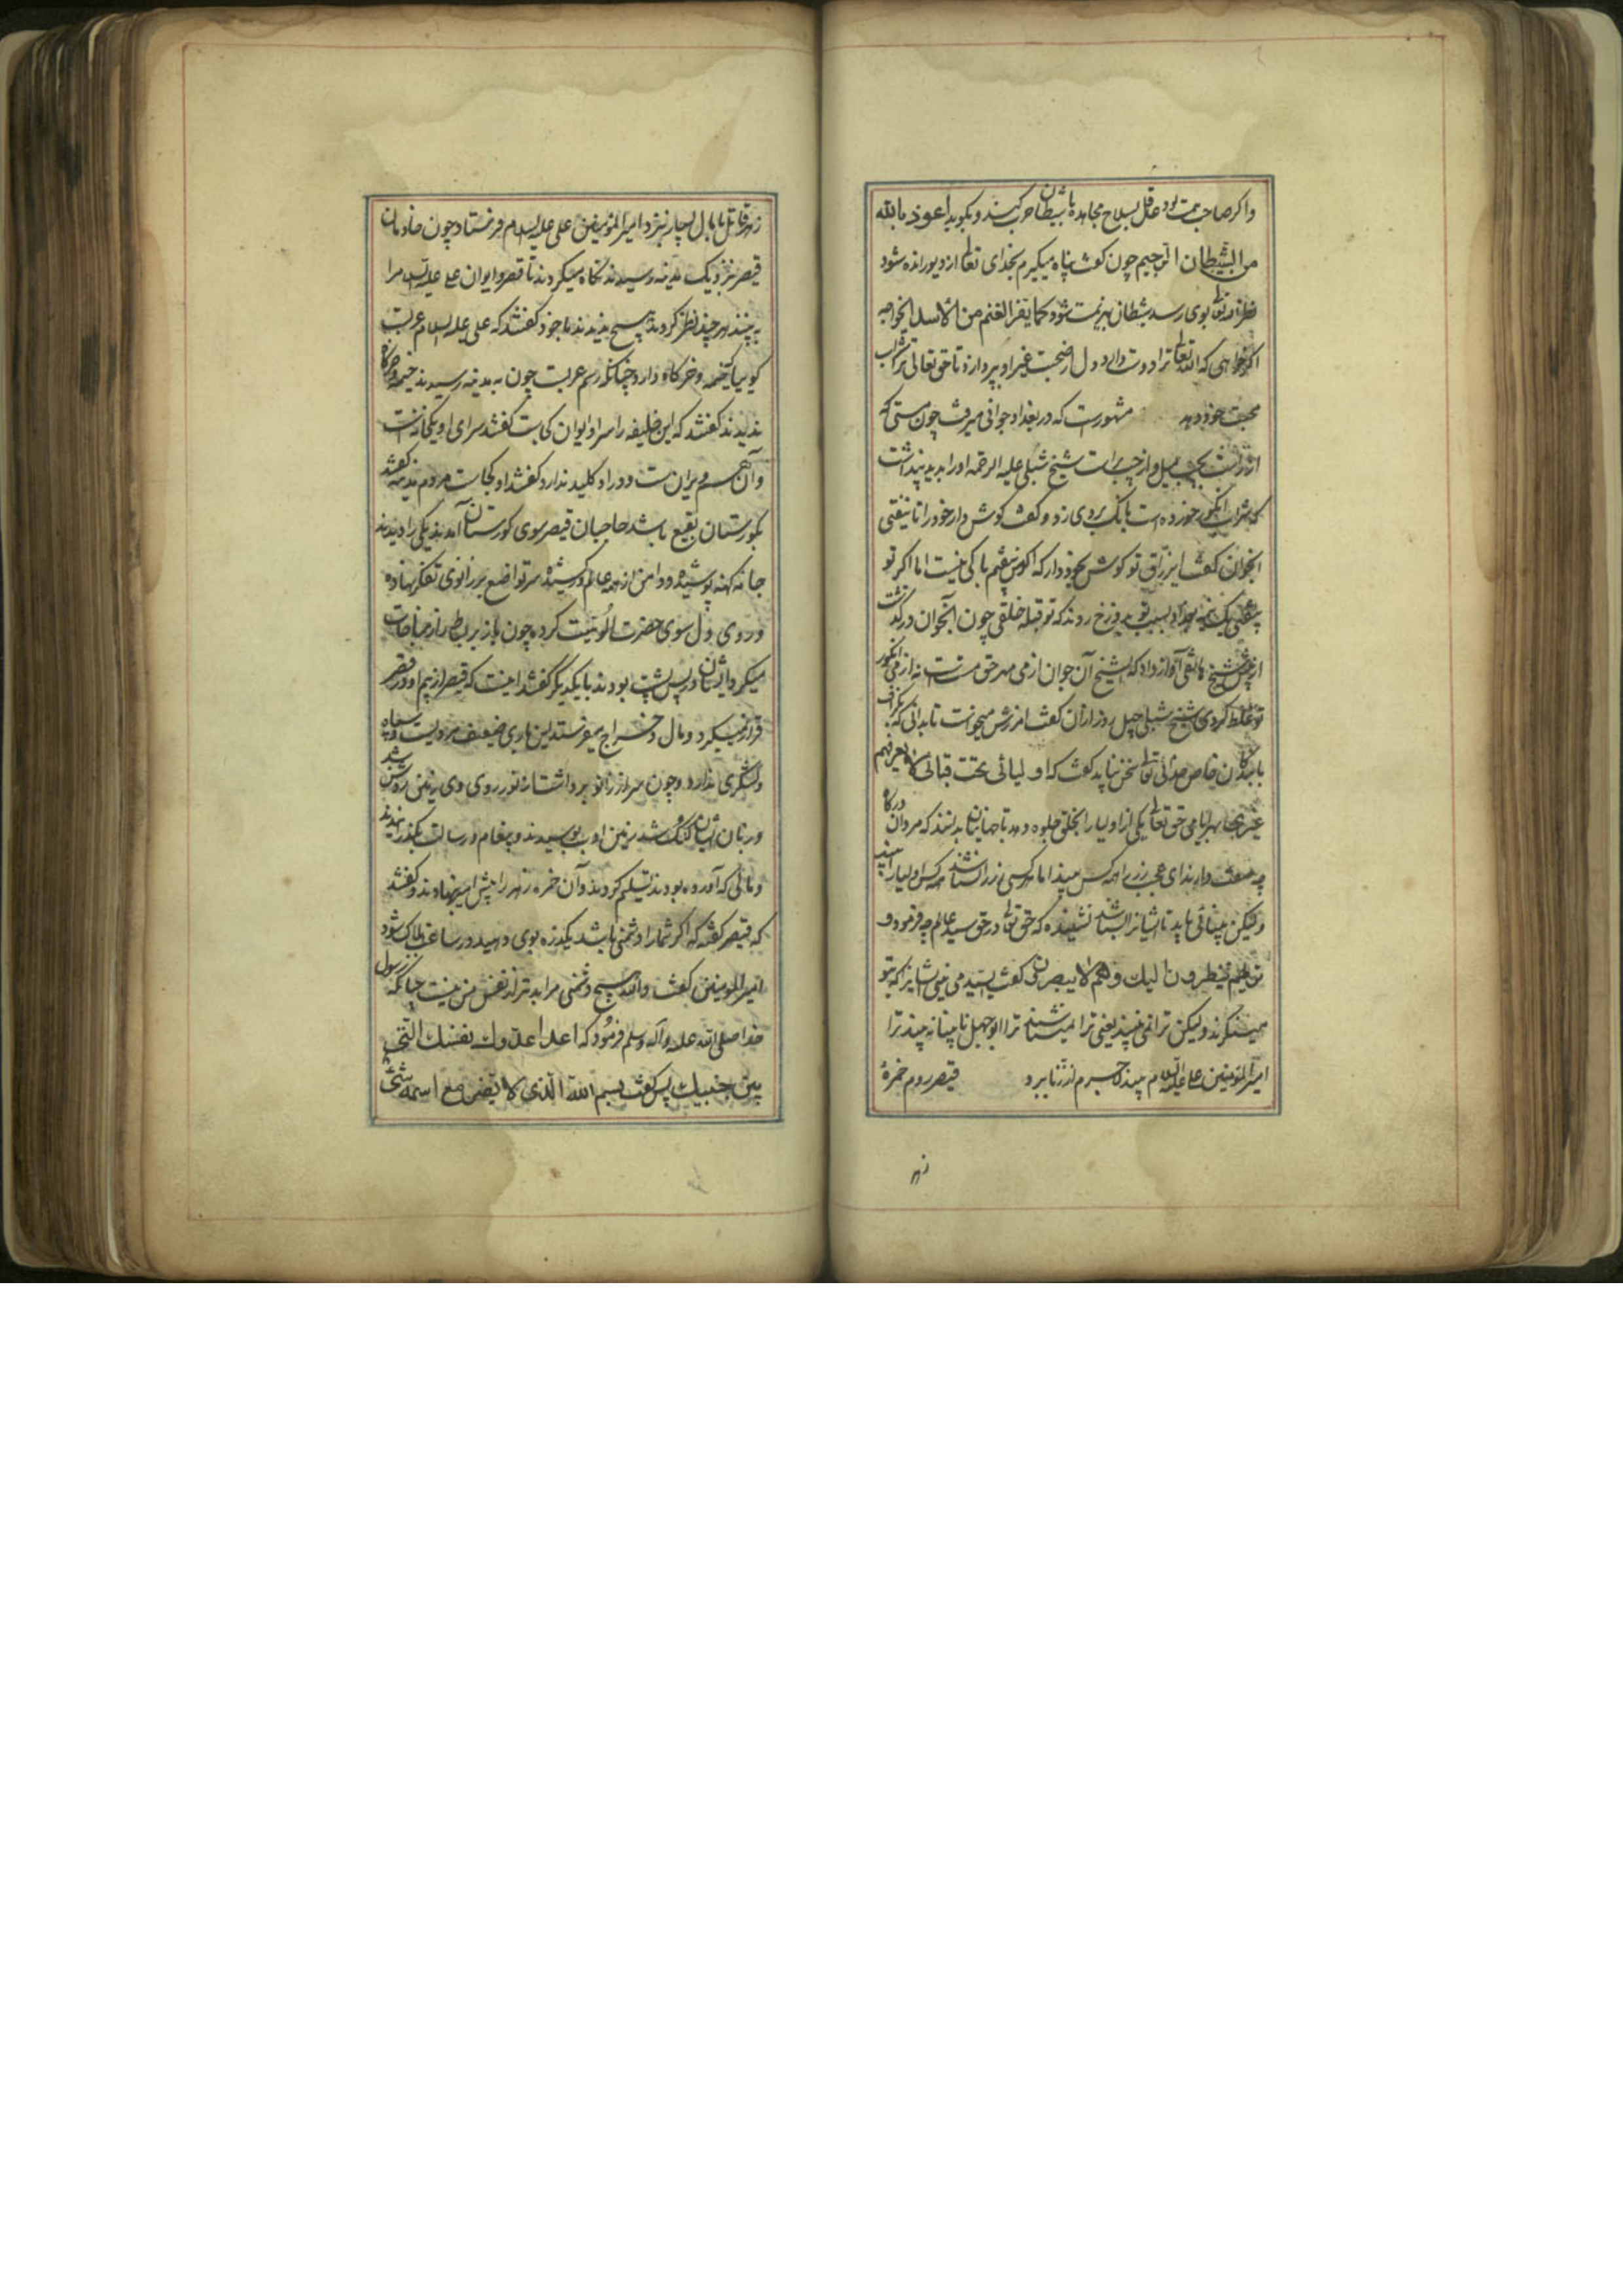 واکر صاحب همت بود عاقل بسلاح مجاهده با شیطان حرب کند و بکوید اعوذ بالله
من الشیطان الرجیم چون کفت پناه میکیرم بخدای تعالی از دیو رانده شود
نظر خدای تعالی بوی رسد شیطان بهزیمت شود کما یفر الغنم من الاسد ایخواجه
اکر خواهی که الله تعالی ترا دوست دارد دل از صحبت غیر او بپرداز تا حق تعالی ترا شراب
محبت خود دهد مشهورست که در بغداد جوانی میرفت چون مستی که
از راست بچپ میل و از چپ براست شیخ شبلی علیه الرحمه او را بدید پنداشت
که شراب انکور خورده است بانک بروی زد و کفت کوش دار خود را تا نیفتی
انجوان کفت ای تو کوش بخود دار که اکر من بیفتم باکی نیست اما اکر تو
بیفتی بسبب تو بدوزخ روند که تو قبله خلقی چون آنجوان در کذشت
شیخ هاتفی آواز داد که ای شیخ آن جوان از می مهر حق مست است نه از می انکور
تو غلط کردی شیخ شبلی چهل روز از آن کفت امرزش میخواست تا بدانی که بکزاف
با بندکان خاص خدای تعالی سخن نباید کفت که اولیائی تحت قبائی لا یعرفهم
غیری اما حق تعالی یکی از اولیا را بخلق جلوه دهد تا جهانیان بدانند که مردان درکاه
چه صفت دارند ای عجب زر را همه کس بیند اما هر کسی زر را نشناسد همه کس اولیا را بیند
ولیکن بینائی باید تا ایشانرا بشناسد نشنیده که حق تعالی در حق سید عالم چه فرمود و
تریهم ینظرون الیک و هم لا یبصرون کفت ای سید می بینی ایشانرا که بتو
مینکرند ولیکن ترا نمی بینند یعنی ترا نمیشناسند ترا ابوجهل نابینا نه بیند ترا
امیرالمؤمنین علی علیه السلام بیند قیصر روم خمره
زهر
زهر قاتل با مال بسیار نزد امیرالمؤمنین علی علیه السلام فرستاد چون خادمان
قیصر نزدیک مدینه رسیدند نکاه میکردند تا قصر و ایوان علی علیه السلام را
به بینند هر چند نظر کردند هیچ ندیدند با خود کفتند که علی علیه السلام عربست
کوییا خیمه و خرکاه دارد چنانکه رسم عربست چون به مدینه رسیدند خیمه و خرکاه
ندیدند کفتند که این خلیفه را سرا و ایوان کجاست کفتند سرای او یکخانه است
و آن هم ویرانست و در او کلید ندارد کفتند او کجاست مردم مدینه کفتند
بکورستان بقیع باشد حاجبان قیصر سوی کورستان آمدند یکی را دیدند
جامه کهنه پوشیده و دامن از همه عالم در کشیده سر تواضع بر زانوی تفکر نهاده
و روی دل سوی حضرت الوهیت کرده چون باز بر بط راز مناجات
میکرد و ایشان در پس پشت بودند با یکدیکر کفتند اینست که قیصر از بیم او در قصر
قرار نمیکیرد و مال و خراج میفرستد این باری ضعیف مردیست و سپاه
و لشکری ندارد و چون سر از زانو برداشت از نور روی وی زمین روشن شد
و زبان ایشان کنک شد زمین ادب ببوسیدند و پیغام و رسالت بکذرانیدند
و مالی که آورده بودند تسلیم کردند و آن خمره زهر را پیش امیر بنهادند و کفتند
که قیصر کفته که اکر شمارا دشمنی باشد یکذره بوی دهید در ساعت هلاک شود
امیرالمؤمنین کفت والله هیچ دشمنی مرا بدتر از نفس من نیست چنانکه رسول
خدا صلی الله علیه و آله وسلم فرمود که اعدا عدوک نفسک التی
بین جنبیک پس کفت بسم الله الذی لا یضر مع اسمه شئ